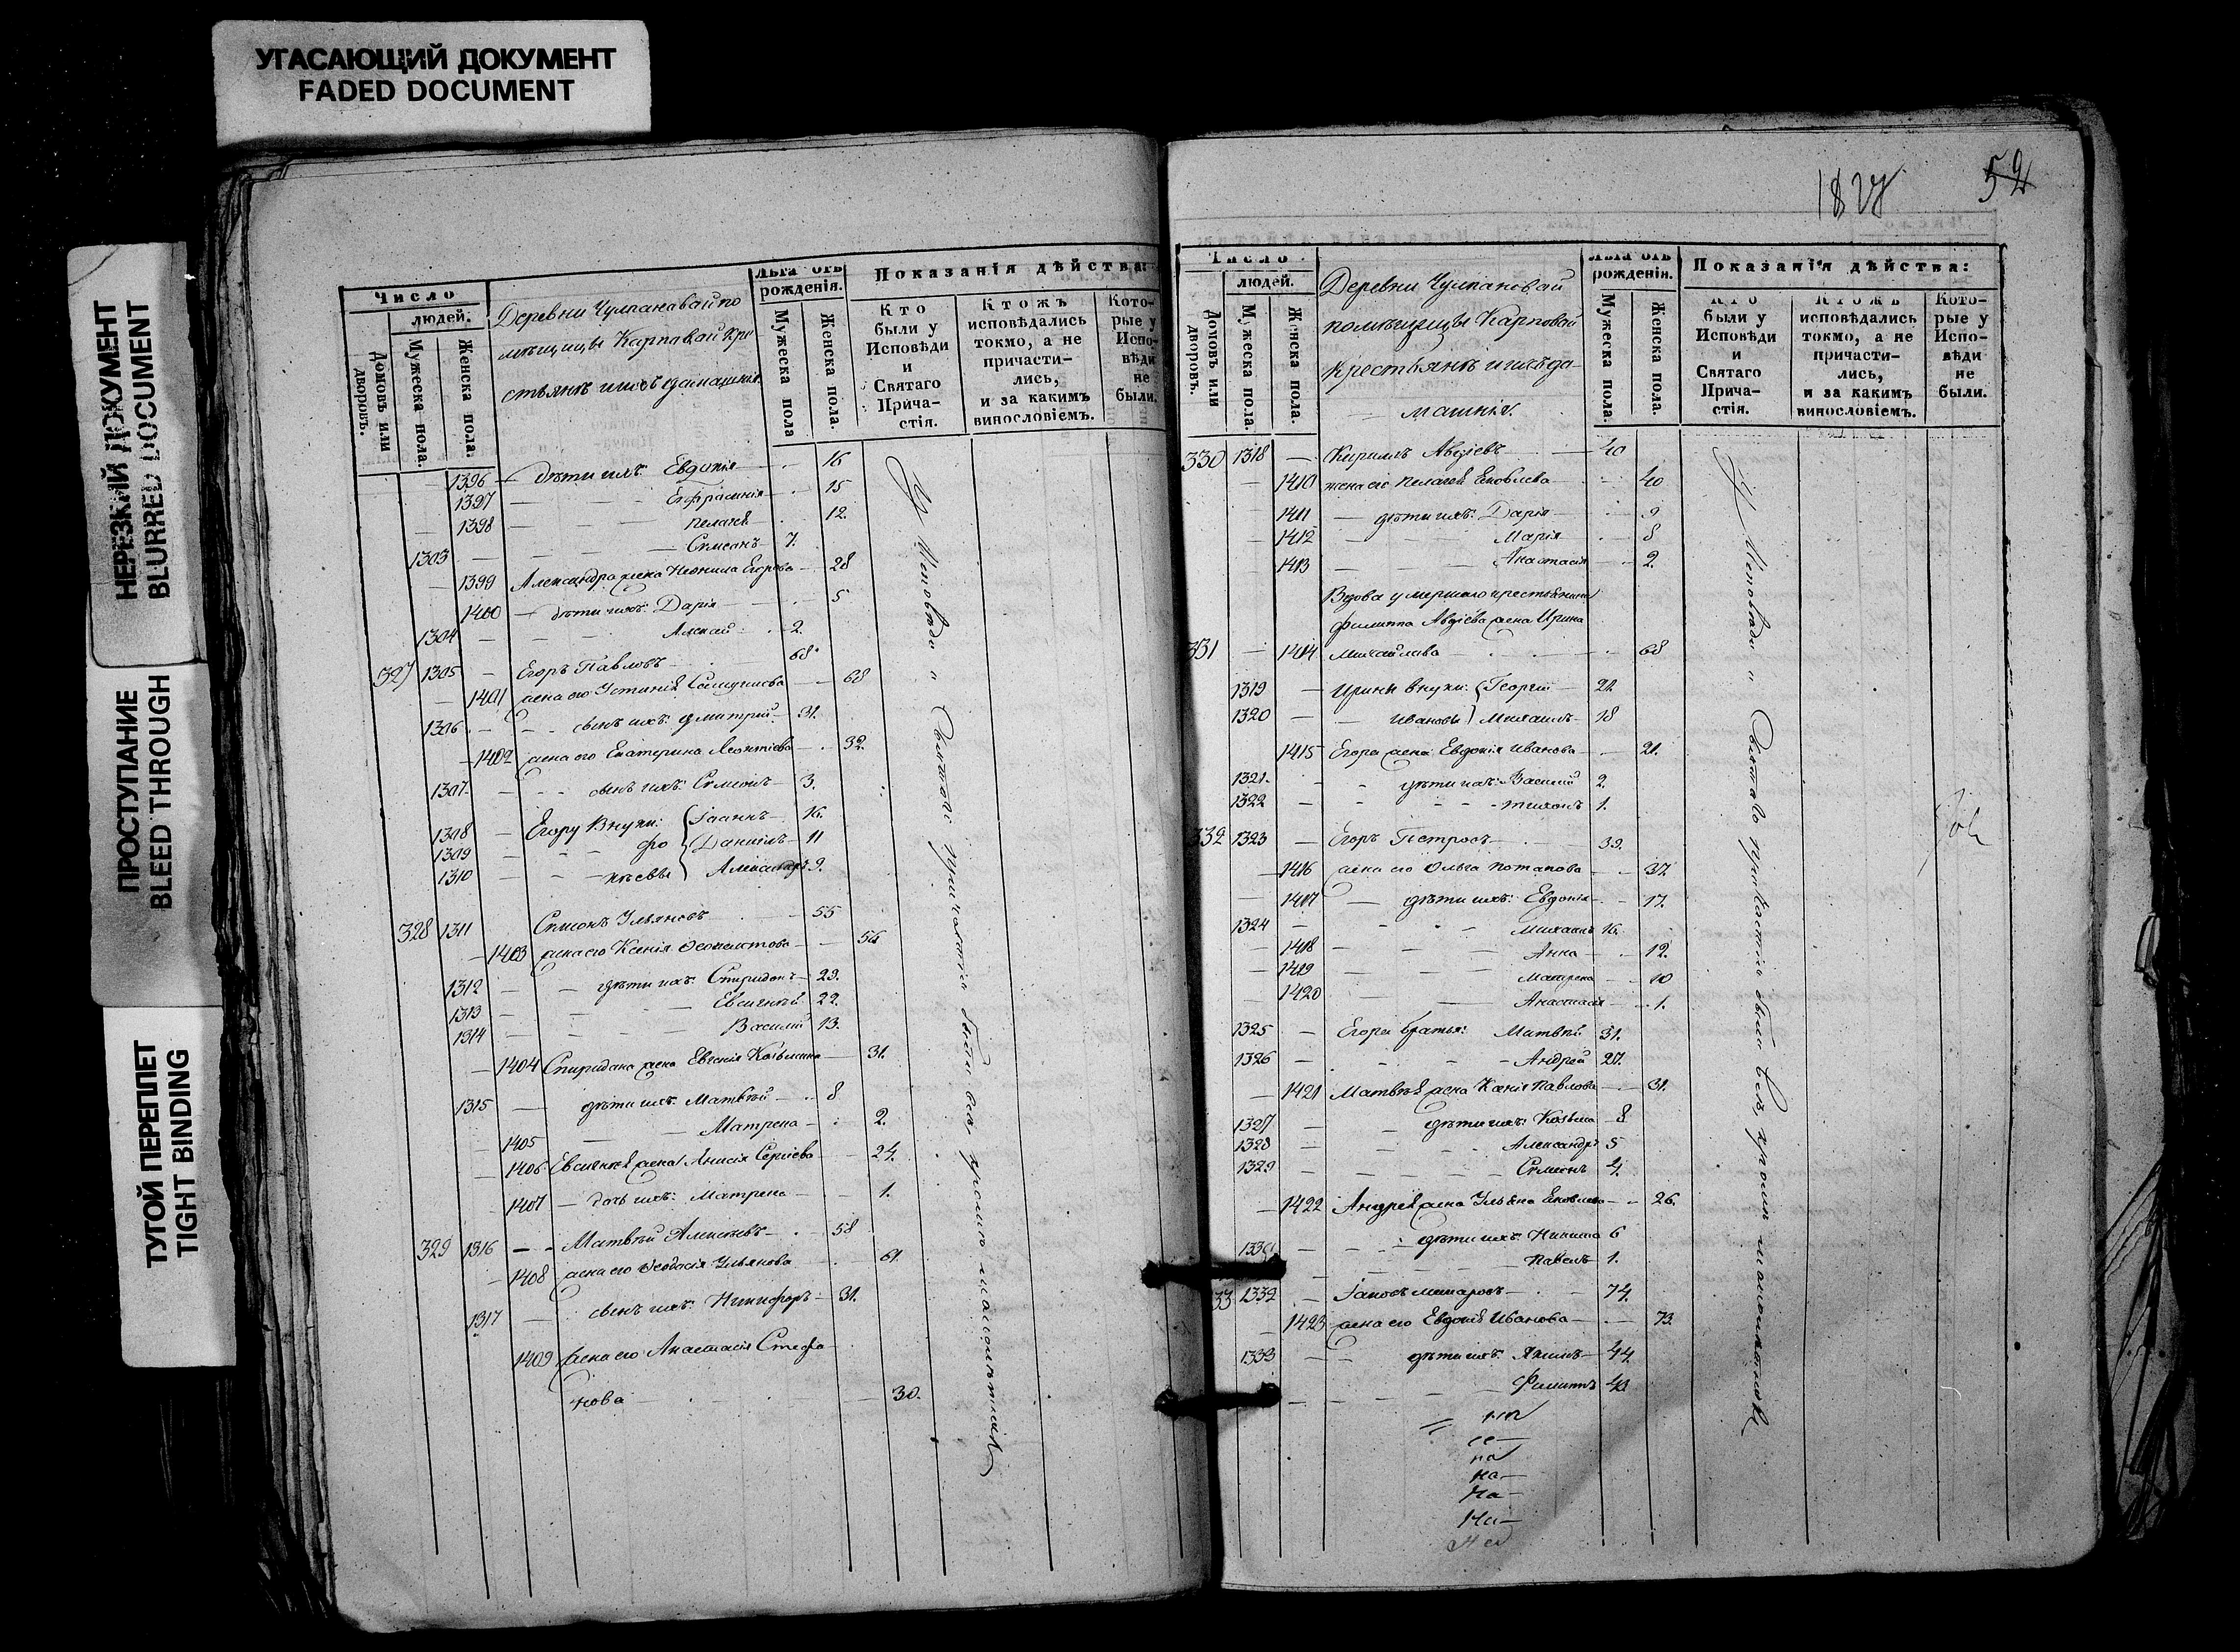 УГАСАЮЩИЙ ДОКУМЕНТ
FADED DOCUMENT
НЕРЕЗКИЙ ДОКУМЕНТ
BLURRED DOCUMENT
ПРОСТУПАНИЕ
BLEED THROUGH
ТУГОЙ ПЕРЕПЛЕТ
TIGHT BINDING
Число
людей.
Домовъ или дворовъ.
Мужеска пола.
Женска пола.
Деревни Чулпанавай по
мѣщицы Карпавай кре
стьянѣ и ихъ домашнія.
Лѣта отъ
рожденія.
Мужеска пола
Женска пола.
Показанія дѣйства:
Кто
были у
Исповѣди
и
Святаго
Прича-
стія.
Ктожъ
исповѣдались
токмо, а не
причасти-
лись,
и за какимъ
винословіемъ.
Кото-
рые у
Испо-
вѣди
не
были.
1396 дѣти ихъ: Евдокія 16
1397 Евфросинія 15
1398 Пелагея 12.
1303 Симеонъ 7.
1399 Александра жена Неонила Егорова 28
1400 дѣти ихъ: Дарія 5
1304 2.
327 1305 Егоръ Павловъ 68
1401 жена его Устинія 68
1306 сынъ ихъ: Дмитрій 31.
1402 жена его Екатерина Леонтіева 32.
1307 сынъ ихъ: Симеонъ 3.
1308 Егору внуки: Іоаннъ 16.
1309 Даніилъ 11
1310 Александръ 9.
328 1311 Симеонъ Ульяновъ 55
1403 жена его Ксенія 56
1312 дѣти ихъ: Спиридонъ 29.
1313 Евсигней 22.
1314 Василій 13.
1404 Спиридона жена Евгенія Козьмина 31.
1315 дѣти ихъ: Матвѣй 8
1405 Матрена 2.
1406 Евсигнея жена Анисія Сергіева 24.
1407 дочь ихъ: Матрена 1.
329 1316 Матвѣй Алексѣевъ 58
1408 жена его Ѳеодосія Ульянова 61.
1317 сынъ ихъ: Никифоръ 31.
1409 жена его Анастасія Стефа
нова 30.
У Исповѣди и Святаго причастія были всѣ, кромѣ малолѣтнихъ
1827
52
Число
людей.
Домовъ или дворовъ.
Мужеска пола.
Женска пола.
Деревни Чулпановай
помѣщицы Карповай
крестьянѣ и ихъ до
машнія.
Лѣта отъ
рожденіи.
Мужеска пола
Женска пола.
Показанія дѣйства:
Кто
были у
Исповѣди
и
Святаго
Прича-
стія.
Ктожъ
исповѣдались
токмо, а не
причасти-
лись,
и за какимъ
винословіемъ.
Кото-
рые у
Испо-
вѣди
не
были.
330 1318 Кирилъ Авдіевъ 40
1410 жена его Пелагея Яковлева 40
1411 дѣти ихъ: Дарія 9
1412 Марія 8
1413 Анастасія 2.
Вдова умершаго крестьянина
Филиппа Авдіева жена Ирина
331 1414 Михайлава 68
1319 Ирины внуки: Георгій 22
1320 Ивановы Михаилъ 18
1415 Егора жена Евдокія Иванова 21.
1321. дѣти ихъ: Василій 2.
1322 Тихонъ 1.
332 1323 Егоръ Петровъ 39.
1416 жена его Ольга Потапова 37.
1417 дѣти ихъ: Евдокія 17.
1324 Михаилъ 16.
1418 Анна 12.
1419 Матрена 10
1420 Анастасія 1.
1325 Егора братья: Матвѣй 31.
1326 Андрей 27.
1421 Матвѣя жена Ксенія Павлова 31.
1327 дѣти ихъ: Козьма 8
1328 Александръ 5
1329 Симеонъ 4.
1422 Андрея жена Ульяна Яковлева 26.
1330 дѣти ихъ: Никита 6
Павелъ 1.
33 1332 Іаковъ 74.
1423 жена его Евдокія Иванова 73.
1333 дѣти ихъ: 44.
Филиппъ 40
У Исповѣди и Святаго причастія были всѣ, кромѣ малолѣтнихъ